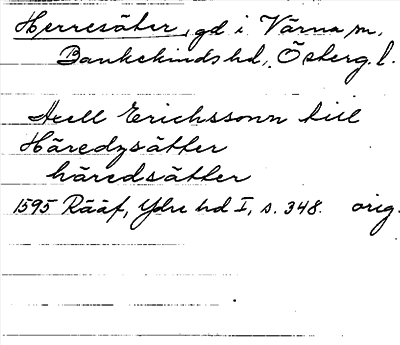 Herresäter, gd i Värna sn,
Bankekinds hd, Österg. l.
Axell Erichssonn till
Häredzsätter
häredsätter
1595 Rääf, Ydre hd I, s. 348. orig.